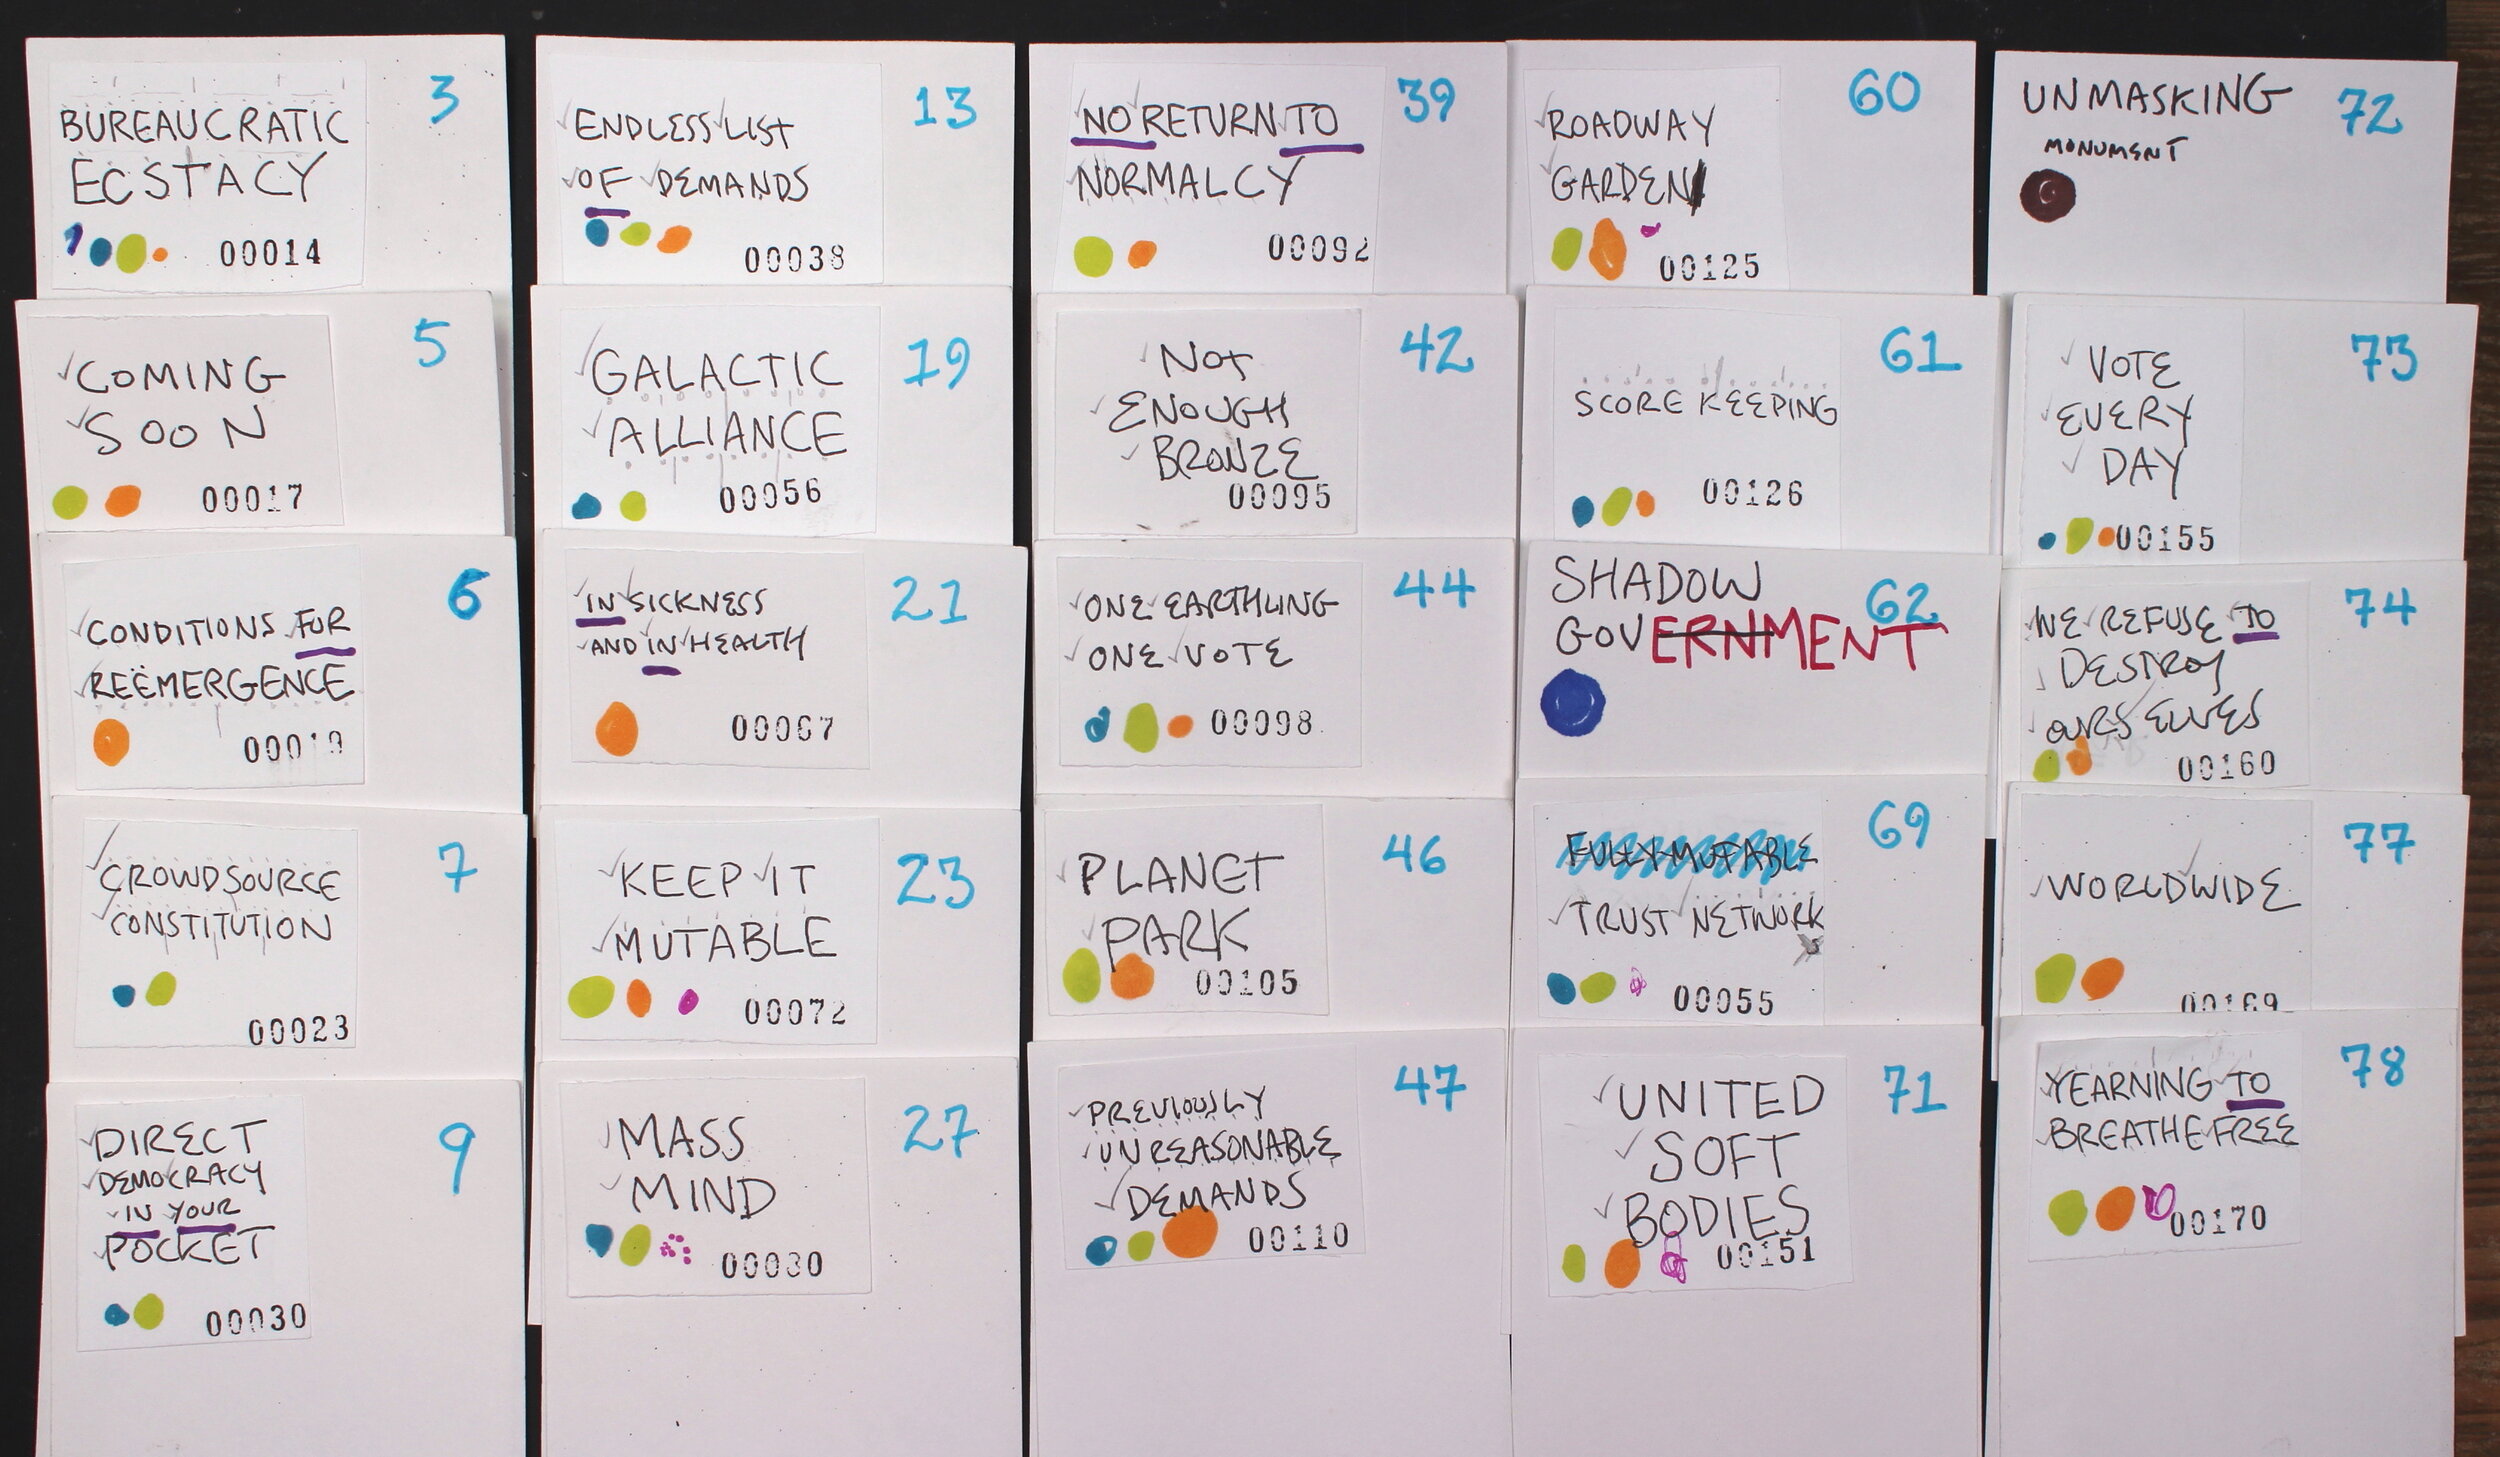 3
BUREAUCRATIC
ECSTACY
00014
5
COMING
SOON
00017
6
CONDITIONS FOR
REËMERGENCE
00019
7
CROWDSOURCE
CONSTITUTION
00023
9
DIRECT
DEMOCRACY
IN YOUR
POCKET
00030
13
ENDLESS LIST
OF DEMANDS
00038
19
GALACTIC
ALLIANCE
00056
21
IN SICKNESS
AND IN HEALTH
00067
23
KEEP IT
MUTABLE
00072
27
MASS
MIND
00080
39
NO RETURN TO
NORMALCY
00092
42
NOT
ENOUGH
BRONZE
00095
44
ONE EARTHLING
ONE VOTE
00098
46
PLANET
PARK
00105
47
PREVIOUSLY
UNREASONABLE
DEMANDS
00110
60
ROADWAY
GARDEN
00125
61
SCORE KEEPING
00126
62
SHADOW
GOVERNMENT
69
FULLY MUTABLE
TRUST NETWORK
00055
71
UNITED
SOFT
BODIES
00151
72
UNMASKING
MONUMENT
73
VOTE
EVERY
DAY
00155
74
WE REFUSE TO
DESTROY
OURSELVES
00160
77
WORLDWIDE
00169
78
YEARNING TO
BREATHE FREE
00170